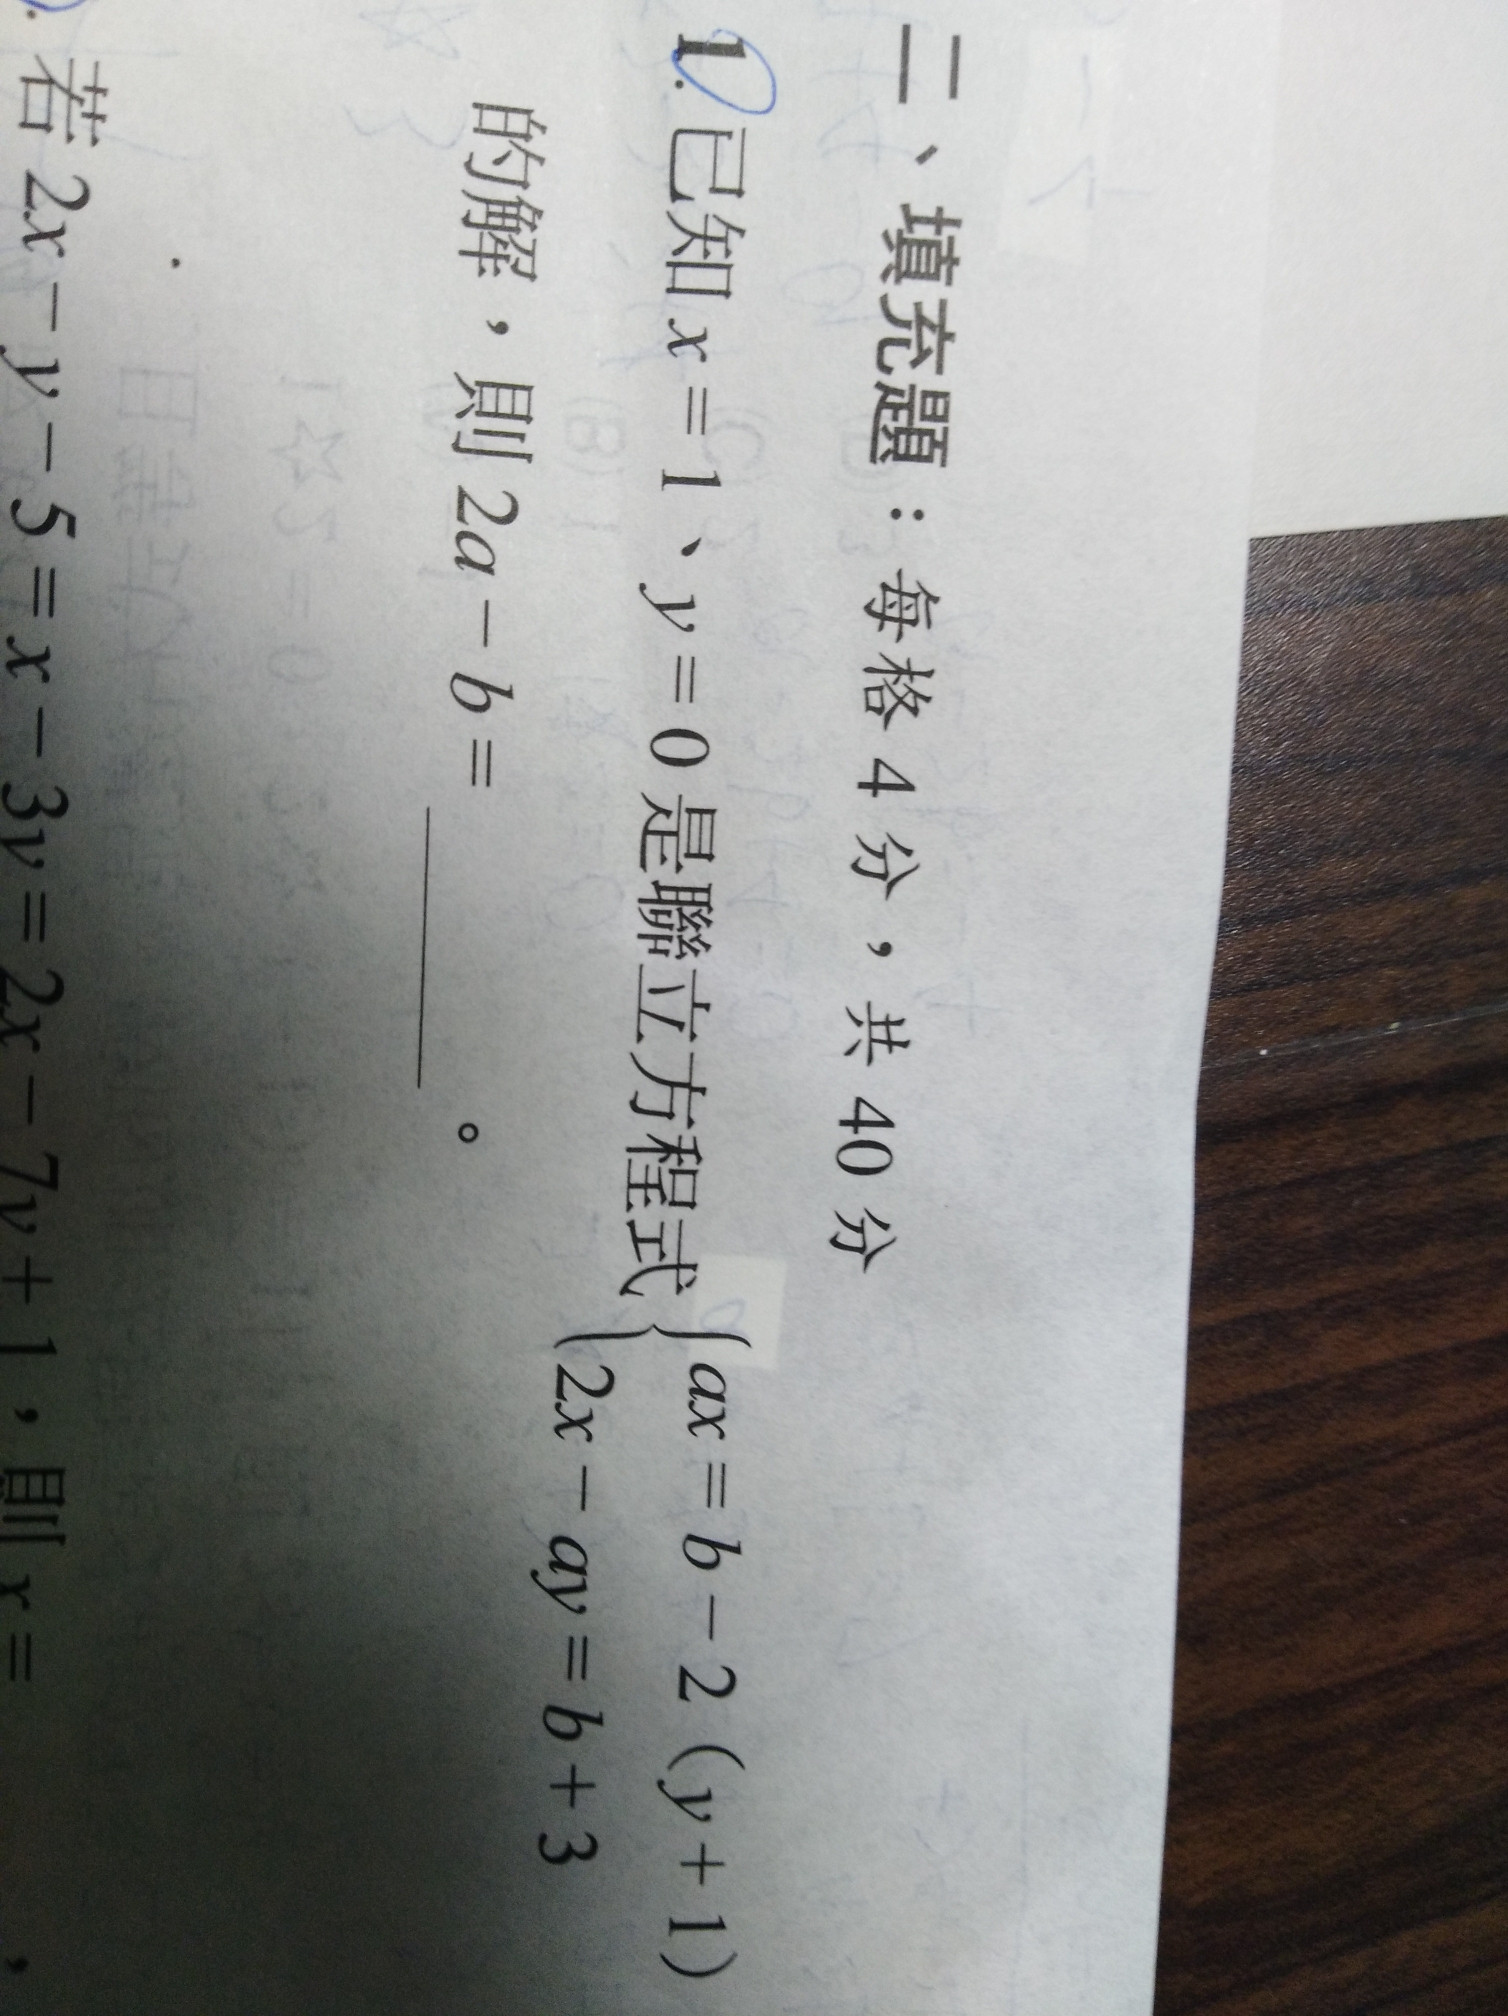 二、填充題：每格 4 分，共 40 分
1. 已知 x = 1、y = 0 是聯立方程式 { ax = b − 2 (y + 1)
2x − ay = b + 3
的解，則 2a − b = ＿＿＿＿。
若 2x − y − 5 = x − 3y = 2x − 7y + 1，則 x =